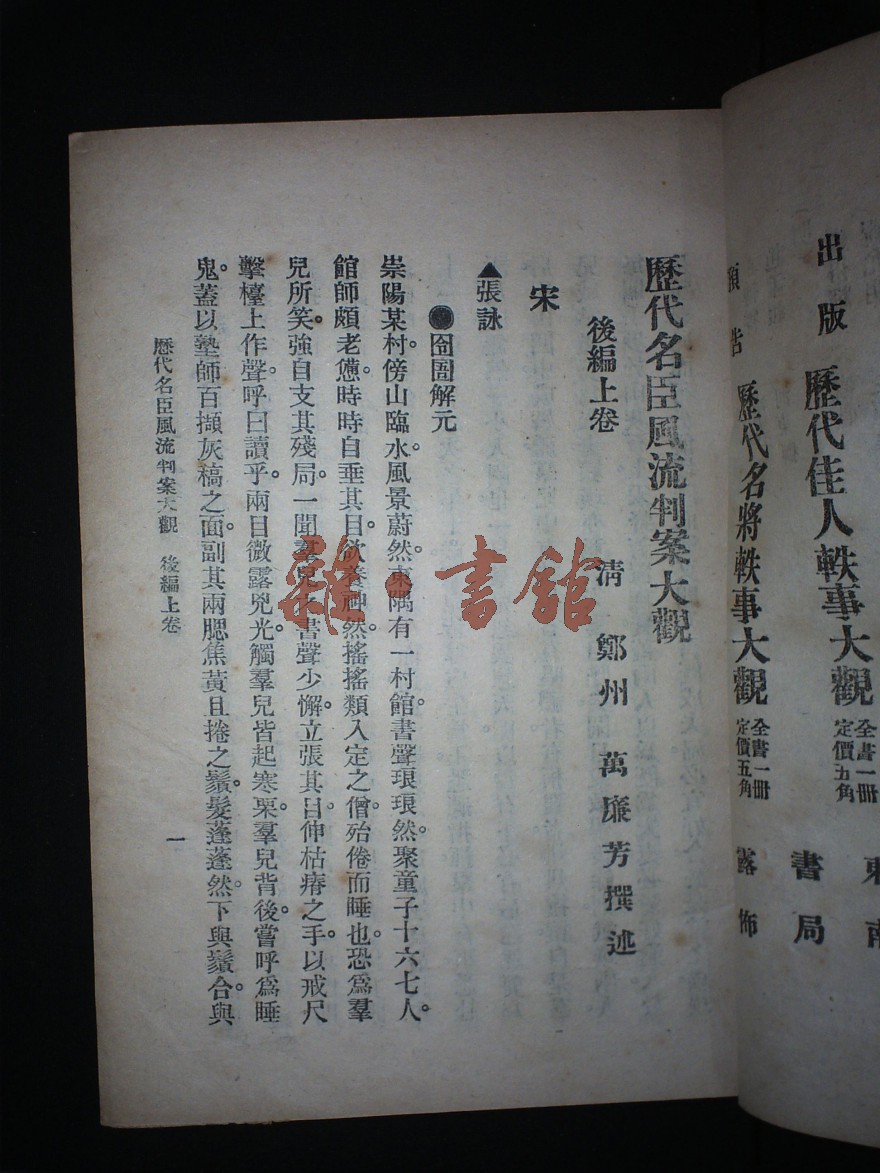 出版 歷代佳人軼事大觀 全書一冊 定價五角
預告 歷代名將軼事大觀 全書一冊 定價五角
東南
書局
露佈
歷代名臣風流判案大觀
後編上卷 清 鄭州 萬廉芳撰述
宋
▲張詠
●囹圄解元
崇陽某村。傍山臨水。風景蔚然。東隅有一村館。書聲琅琅然。聚童子十六七人。
館師頗老憊。時時自垂其目。欲養神然。搖搖類入定之僧。殆倦而睡也。恐爲羣
兒所笑。強自支其殘局。一聞羣兒 書聲少懈。立張其目。伸枯瘠之手。以戒尺
擊檯上作聲。呼曰讀乎。兩目微露兇光。觸羣兒皆起寒栗。羣兒背後。嘗呼爲睡
鬼。蓋以塾師百擷灰槁之面。副其兩腮焦黃且捲之鬚。髮蓬蓬然。下與鬚合。與
歷代名臣風流判案大觀 後編上卷 一
雜·書館